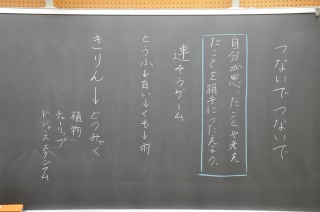 つないでつないで
自分が思ったことや考え
たことを相手につたえよう。
連そうゲーム
とうふ↓白い↓くも↓雨…
きりん→どうぶつ
植物
チューリップ